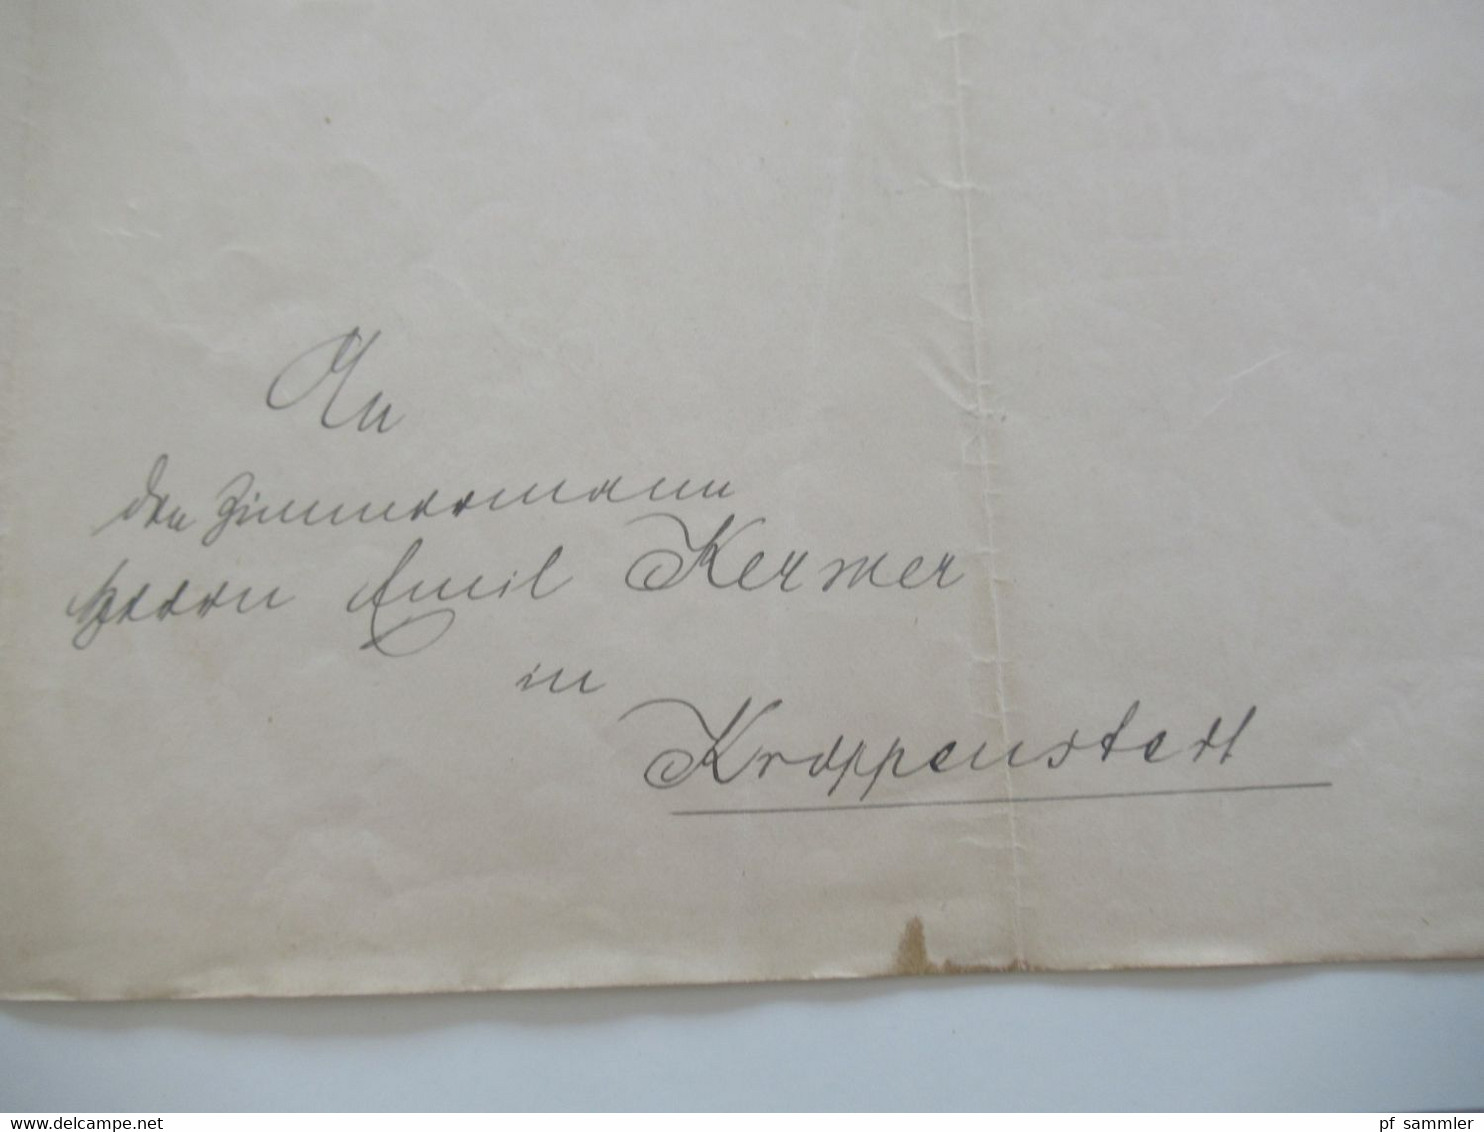 An
den Zimmermann
Herrn Emil Kermer
in
Kroppenstedt
www.delcampe.net
pf_sammler